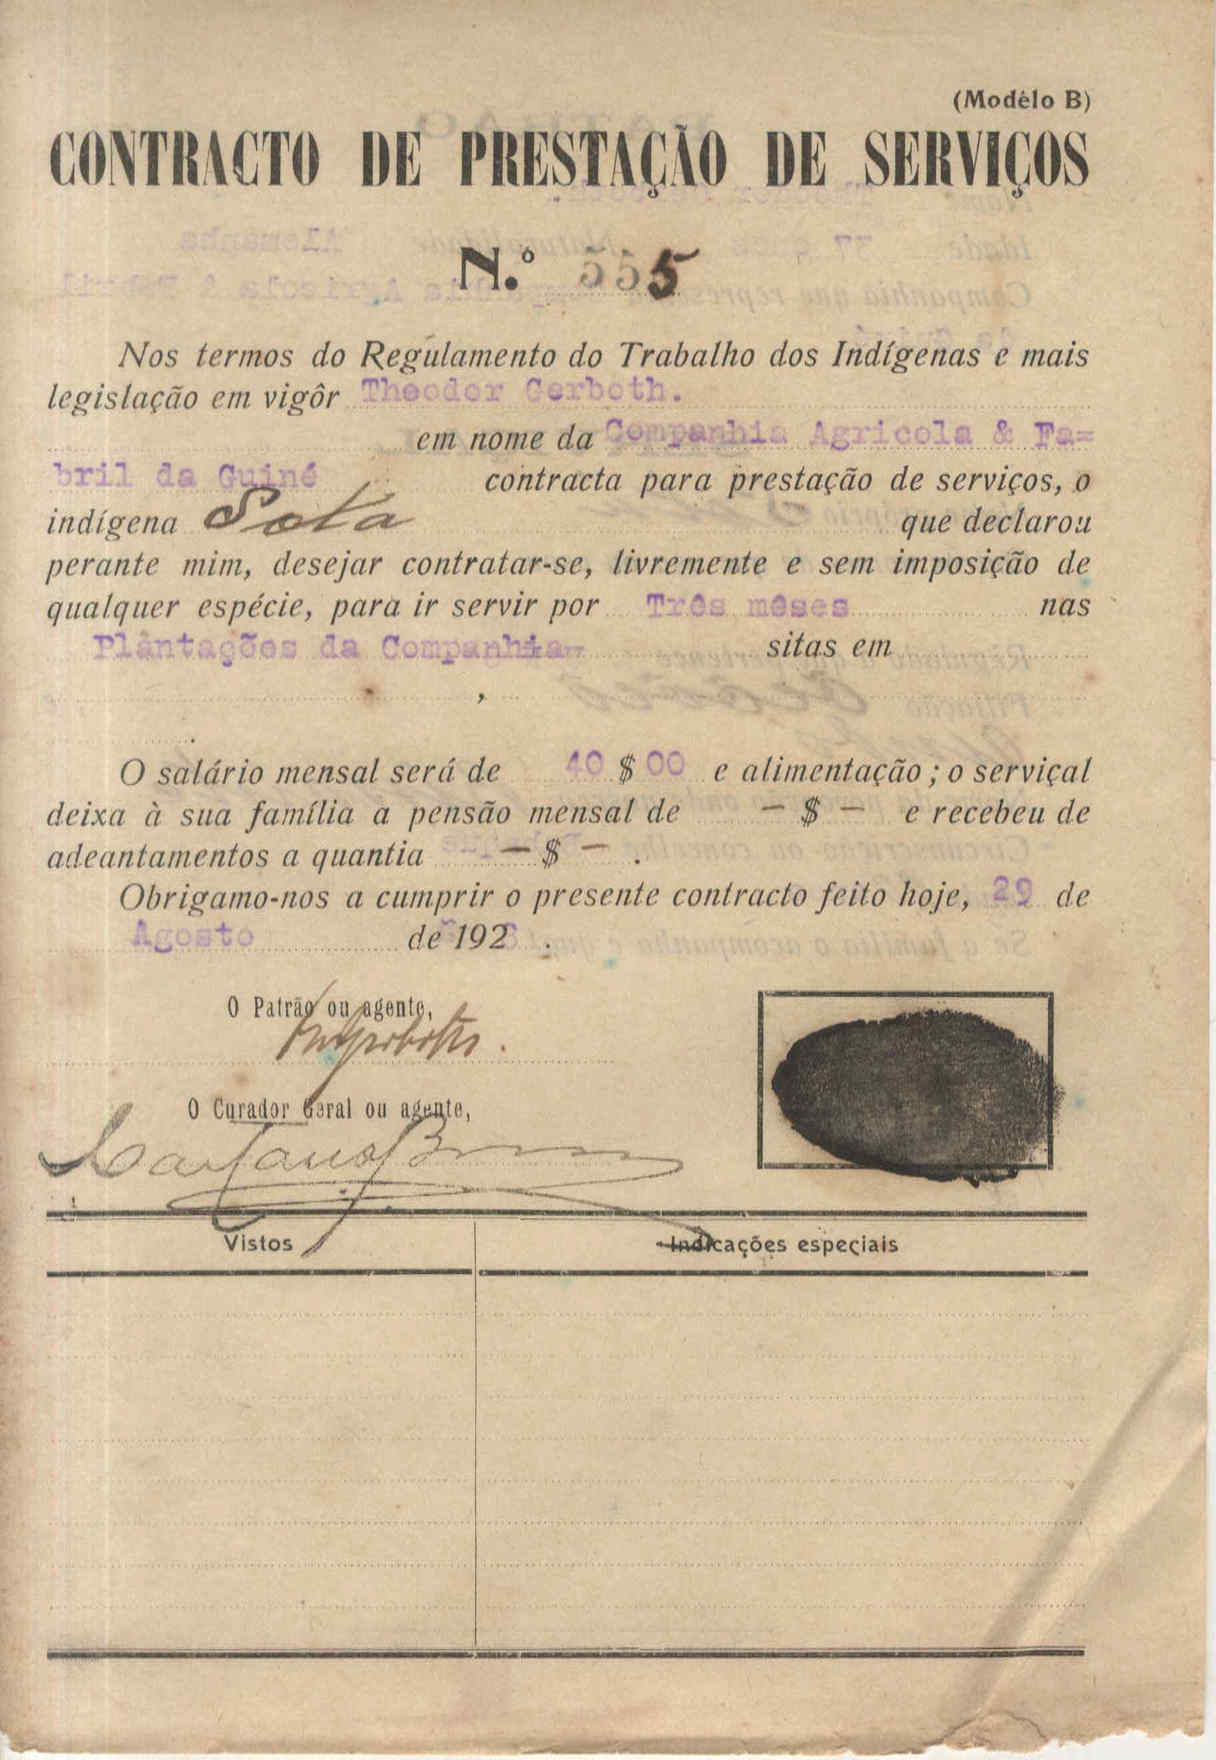 (Modêlo B)
CONTRACTO DE PRESTAÇÃO DE SERVIÇOS
N.º 555
Nos termos do Regulamento do Trabalho dos Indígenas e mais
legislação em vigôr Theodor Gerboth.
em nome da Companhia Agricola & Fa=
bril da Guiné contracta para prestação de serviços, o
indígena Sota que declarou
perante mim, desejar contratar-se, livremente e sem imposição de
qualquer espécie, para ir servir por Três mêses nas
Plântações da Companhia- sitas em
,
O salário mensal será de 40 $ 00 e alimentação ; o serviçal
deixa à sua família a pensão mensal de — $ — e recebeu de
adeantamentos a quantia — $ — .
Obrigamo-nos a cumprir o presente contracto feito hoje, 29 de
Agosto de 192 .
O Patrão ou agente,
O Curador Geral ou agente,
Vistos
Indicações especiais